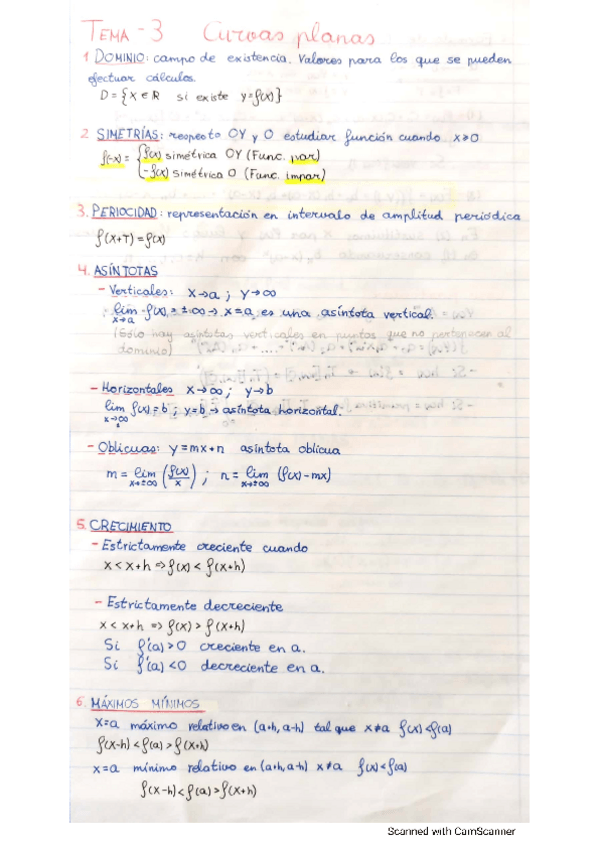 TEMA - 3 Curvas planas
1 DOMINIO: campo de existencia. Valores para los que se pueden
efectuar cálculos.
D = {x ∈ R si existe y=f(x)}
2 SIMETRÍAS: respecto OY y O estudiar función cuando x≥0
f(-x) = { f(x) simétrica OY (Func. par)
-f(x) simétrica O (Func. impar)
3. PERIOCIDAD: representación en intervalo de amplitud periódica
f(x+T) = f(x)
4. ASÍNTOTAS
- Verticales: x→a ; y→∞
lim f(x) = ±∞ → x=a es una asíntota vertical.
x→a
(Sólo hay asíntotas verticales en puntos que no pertenecen al
dominio)
- Horizontales x→∞ ; y→b
lim f(x) = b ; y=b → asíntota horizontal.
x→∞
- Oblicuas: y=mx+n asíntota oblicua
m = lim (f(x)/x) ; n = lim (f(x)-mx)
x→±∞ x→±∞
5. CRECIMIENTO
- Estrictamente creciente cuando
x < x+h ⇒ f(x) < f(x+h)
- Estrictamente decreciente
x < x+h ⇒ f(x) > f(x+h)
Si f'(a)>0 creciente en a.
Si f'(a)<0 decreciente en a.
6. MÁXIMOS MÍNIMOS
x=a máximo relativo en (a+h, a-h) tal que x≠a f(x)<f(a)
f(x-h) < f(a) > f(x+h)
x=a mínimo relativo en (a+h, a-h) x≠a f(x)<f(a)
f(x-h) < f(a) > f(x+h)
Scanned with CamScanner